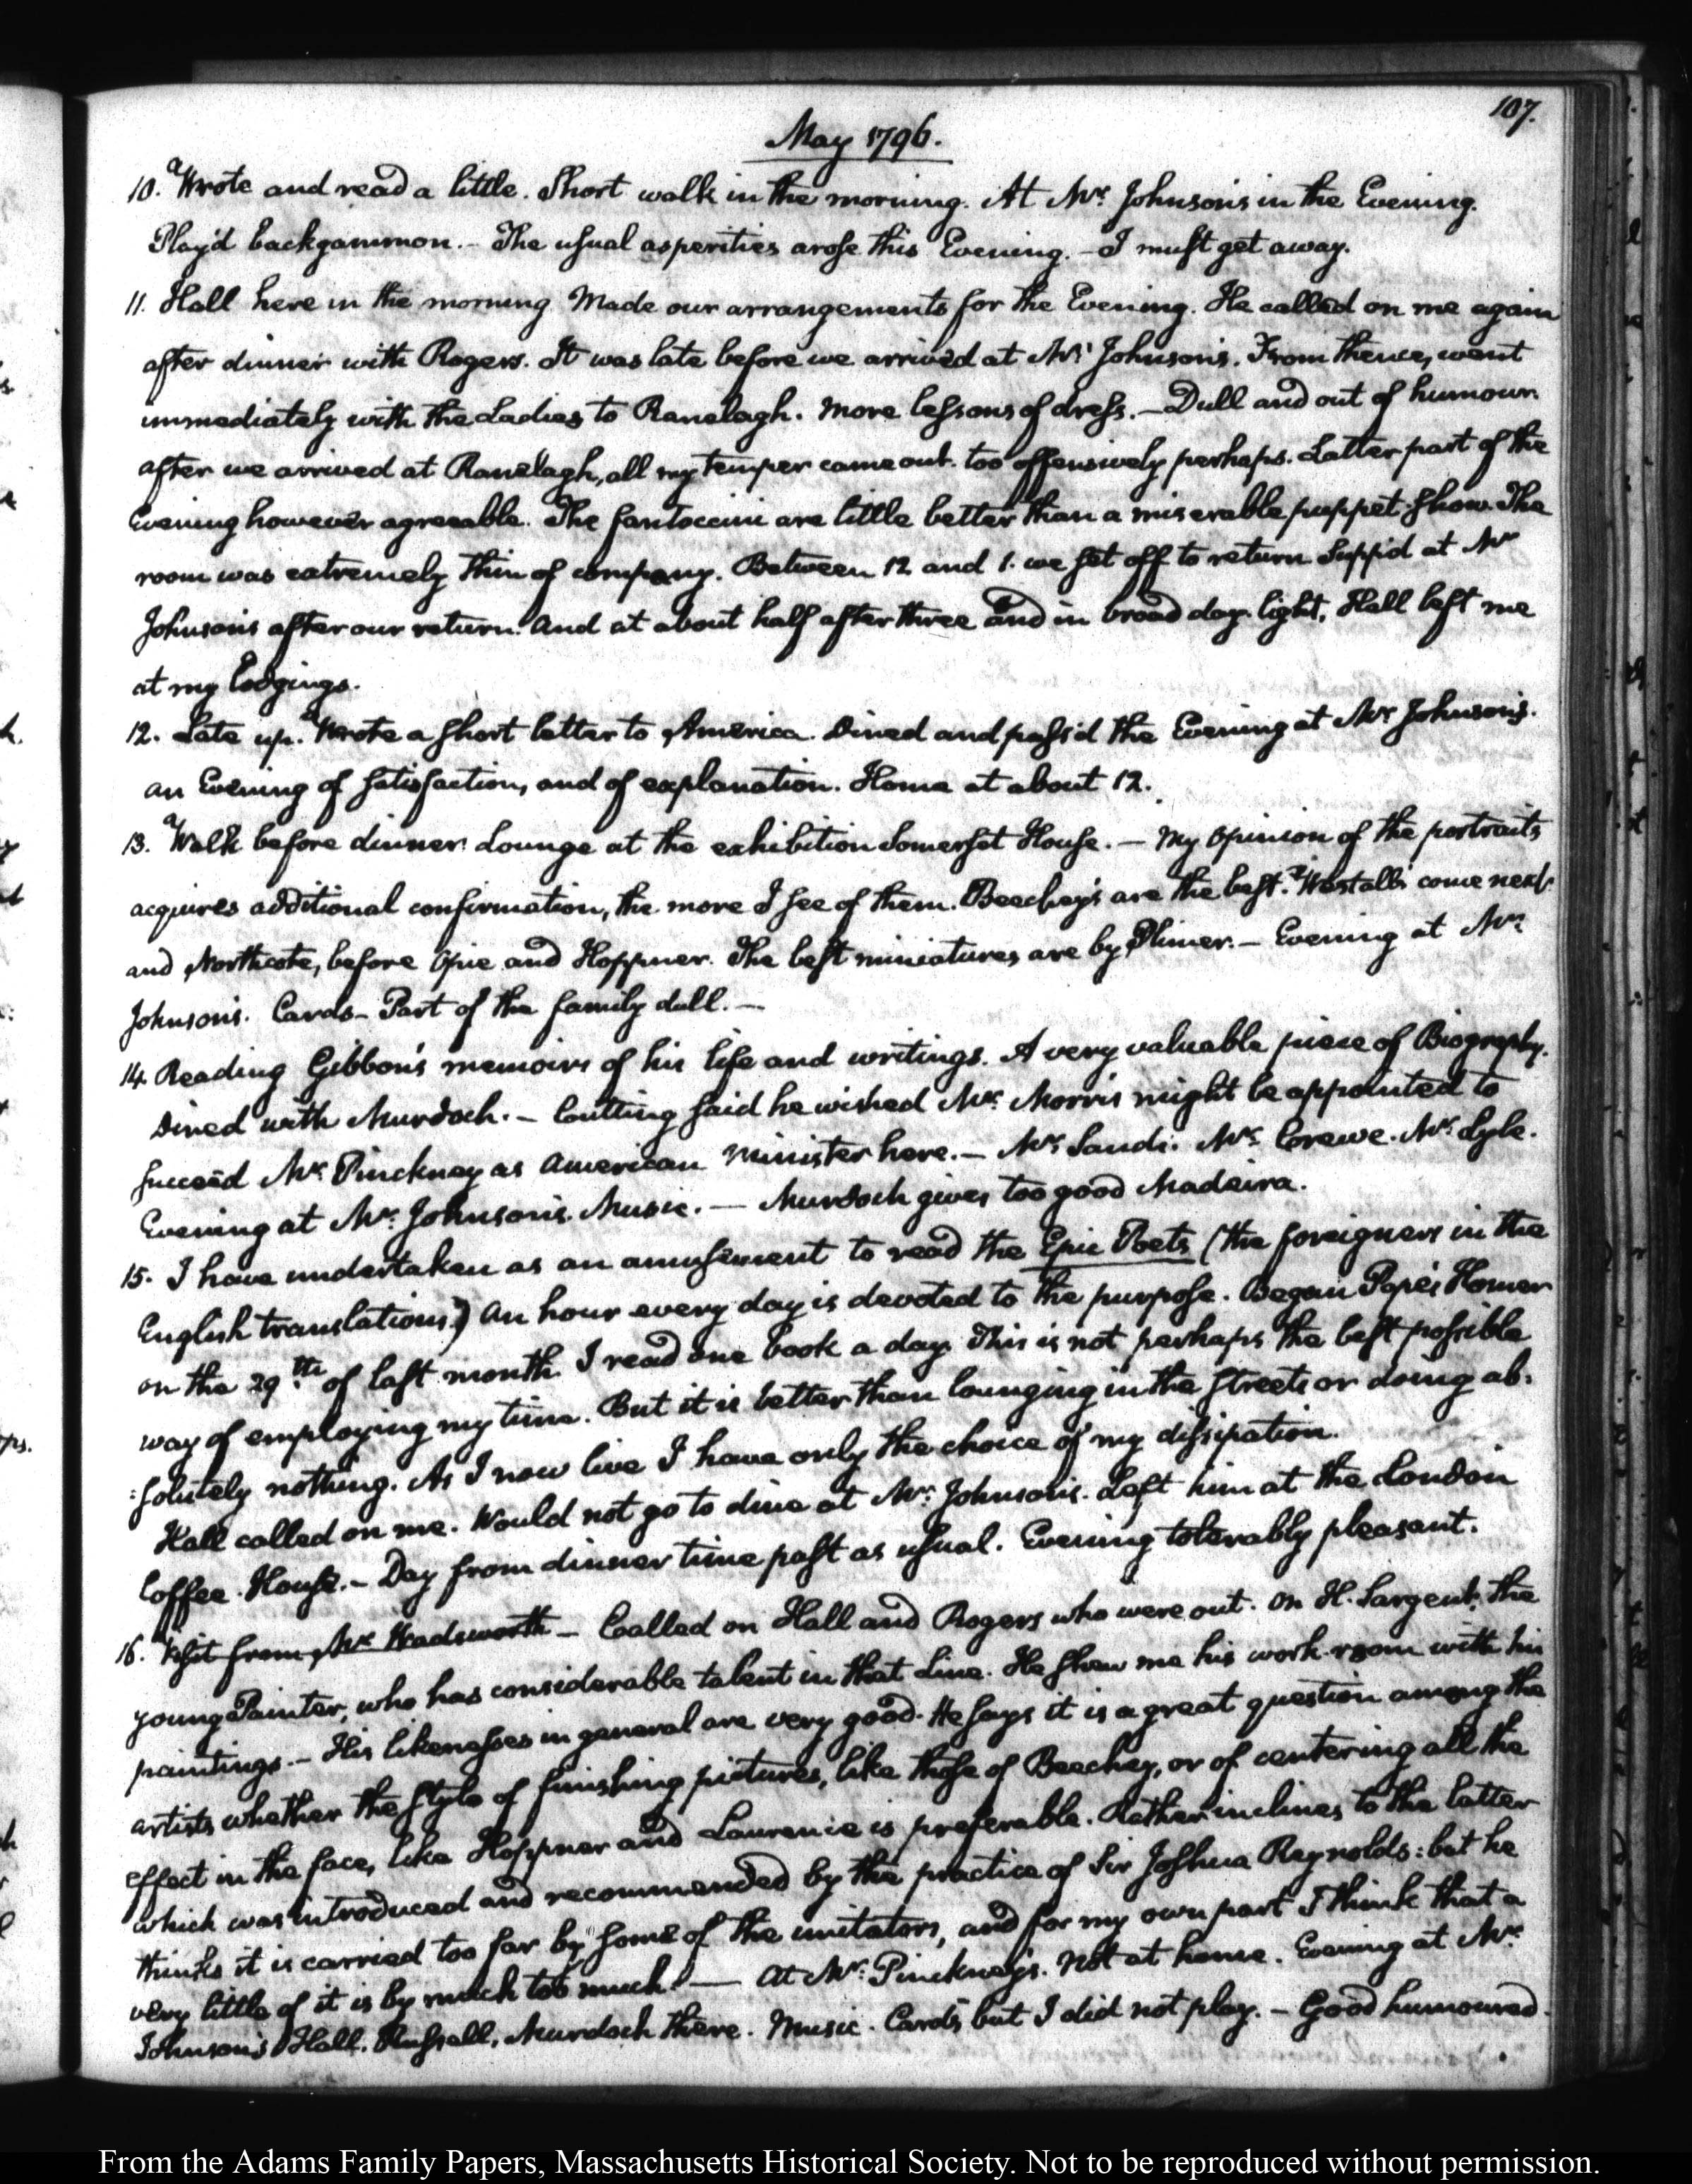 107.
May 1796.
10. Wrote and read a little. Short walk in the morning. At Mr. Johnson's in the Evening.
Play'd backgammon. - The usual asperities arose this Evening. - I must get away.
11. Hall here in the morning Made our arrangements for the Evening. He called on me again
after dinner with Rogers. It was late before we arrived at Mr. Johnson's. From thence, went
immediately with the Ladies to Ranelagh. More lessons of dress. - Dull and out of humour.
after we arrived at Ranelagh, all my temper came out. too offensively perhaps. Latter part of the
Evening however agreeable. The fantoccini are little better than a miserable puppet-show. The
room was extremely thin of company. Between 12 and 1. we set off to return Supp'd at Mr
Johnson's after our return. And at about half after three and in broad day-light, Hall left me
at my lodgings.
12. Late up. Wrote a short letter to America. Dined and pass'd the Evening at Mr Johnson's.
an Evening of satisfaction, and of explanation. Home at about 12.
13. Walk before dinner. Lounge at the exhibition Somerset House. — My opinion of the portraits
acquires additional confirmation, the more I see of them. Beechey's are the best. Westall's come next
and Northcote, before Opie and Hoppner. The best miniatures are by Plimer. - Evening at Mr.
Johnson's. Cards - Part of the family dull. —
14. Reading Gibbon's memoirs of his life and writings. A very valuable piece of Biography.
Dined with Murdoch. - Cutting said he wished Mr. Morris might be appointed to
succeed Mr. Pinckney as American Minister here. - Mr. Sands. Mr. Crewe. Mr. Lyle.
Evening at Mr. Johnson's. Music. — Murdoch gives too good Madeira.
15. I have undertaken as an amusement to read the Epic Poets (the foreigners in the
English translations.) An hour every day is devoted to the purpose. Began Pope's Homer
on the 29th of last month. I read one book a day. This is not perhaps the best possible
way of employing my time. But it is better than lounging in the streets or doing ab-
:solutely nothing. As I now live I have only the choice of my dissipation.
Hall called on me. Would not go to dine at Mr. Johnson's. Left him at the London
Coffee-House. - Day from dinner time past as usual. Evening tolerably pleasant.
16. Visit from Mr. Wadsworth - Called on Hall and Rogers who were out. On H. Sargent, the
young Painter, who has considerable talent in that Line. He shew me his work-room with his
paintings. - His likenesses in general are very good. He says it is a great question among the
artists whether the style of finishing pictures, like those of Beechey, or of centering all the
effect in the face, like Hoppner and Laurence is preferable. Rather inclines to the latter
which was introduced and recommended by the practice of Sir Joshua Reynolds: but he
thinks it is carried too far by some of the imitators, and for my own part I think that a
very little of it is by much too much. — At Mr. Pinckney's. Not at home. Evening at Mr.
Johnson's Hall. Russell, Murdoch there. Music. Cards but I did not play. - Good humoured.
From the Adams Family Papers, Massachusetts Historical Society. Not to be reproduced without permission.